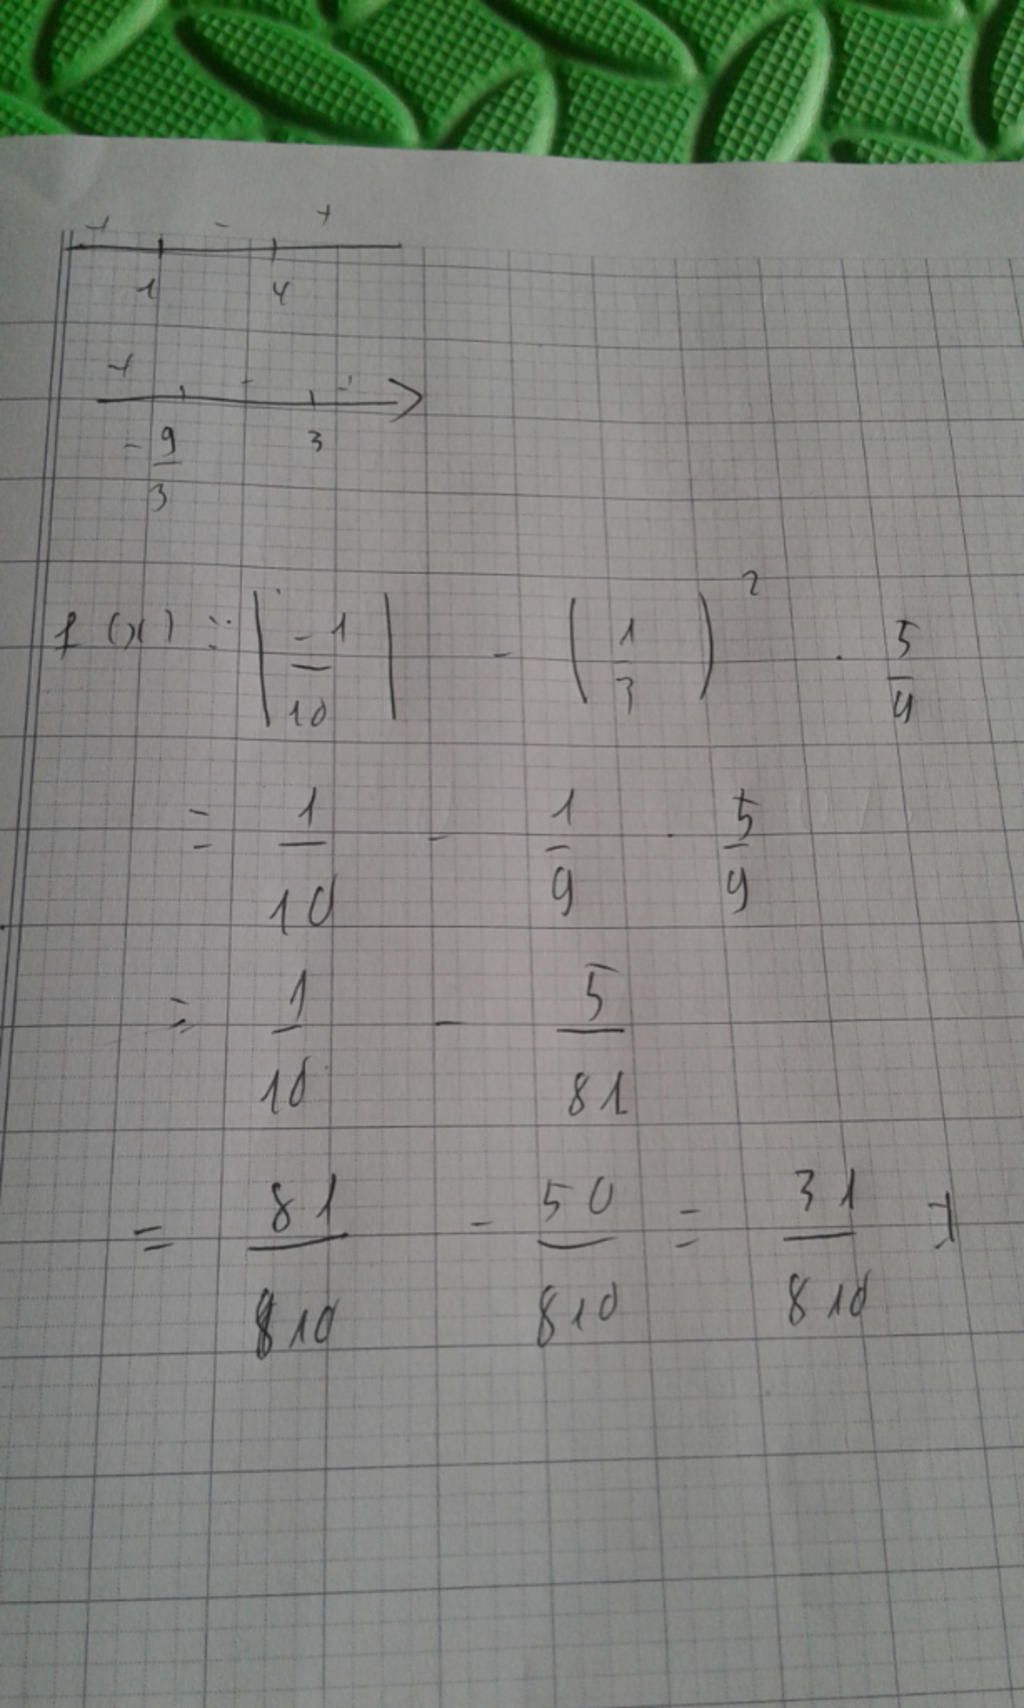 + - +
1 4
+ - +
- 9/3 3
f(x) = |-1/10| - (1/3)² · 5/9
= 1/10 - 1/9 · 5/9
= 1/10 - 5/81
= 81/810 - 50/810 = 31/810